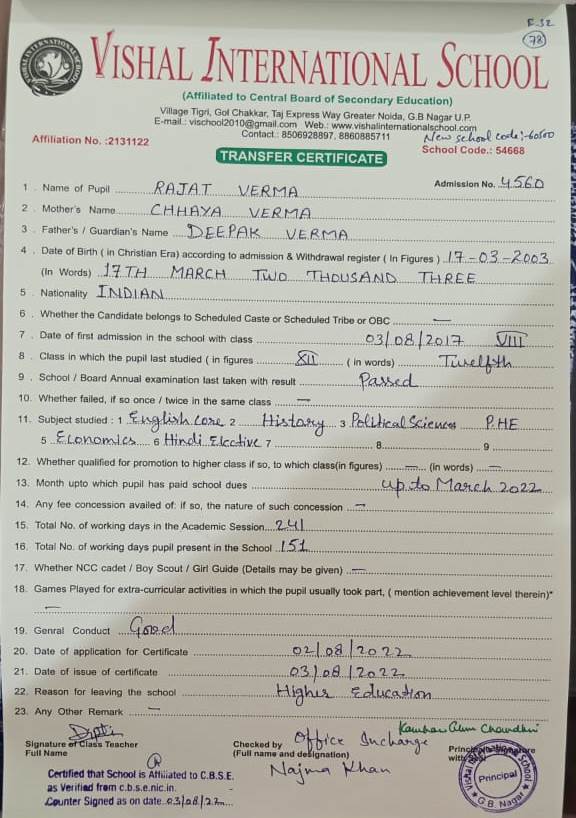 F-32
78
VISHAL INTERNATIONAL SCHOOL
(Affiliated to Central Board of Secondary Education)
Village Tigri, Gol Chakkar, Taj Express Way Greater Noida, G.B Nagar U.P.
E-mail.: vischool2010@gmail.com Web.: www.vishalinternationalschool.com
Contact.: 8506928897, 8860885711
New school code:-60500
Affiliation No. :2131122
School Code.: 54668
TRANSFER CERTIFICATE
Admission No. 4560
1 . Name of Pupil RAJAT VERMA
2 . Mother's Name CHHAYA VERMA
3 . Father's / Guardian's Name DEEPAK VERMA
4 . Date of Birth ( in Christian Era) according to admission & Withdrawal register ( In Figures ) 17-03-2003
(In Words) 17TH MARCH TWO THOUSAND THREE
5 . Nationality INDIAN
6 . Whether the Candidate belongs to Scheduled Caste or Scheduled Tribe or OBC —
7 . Date of first admission in the school with class 03/08/2017 VIII
8 . Class in which the pupil last studied ( in figures XII ( in words) Twelfth
9 . School / Board Annual examination last taken with result Passed
10. Whether failed, if so once / twice in the same class —
11. Subject studied : 1 English core 2 History 3 Political Science P.HE
5 Economics 6 Hindi Elective 7 8 9
12. Whether qualified for promotion to higher class if so, to which class(in figures) — (in words) —
13. Month upto which pupil has paid school dues up to March 2022
14. Any fee concession availed of: if so, the nature of such concession —
15. Total No. of working days in the Academic Session 241
16. Total No. of working days pupil present in the School 151
17. Whether NCC cadet / Boy Scout / Girl Guide (Details may be given) —
18. Games Played for extra-curricular activities in which the pupil usually took part, ( mention achievement level therein)*
—
19. Genral Conduct Good
20. Date of application for Certificate 02/08/2022
21. Date of issue of certificate 03/08/2022
22. Reason for leaving the school Higher Education
23. Any Other Remark —
Signature of Class Teacher
Full Name
Checked by Office Incharge
(Full name and designation) Najma Khan
Principal Signature
with Seal
Certified that School is Affiliated to C.B.S.E.
as Verified from c.b.s.e.nic.in.
Counter Signed as on date 03/08/22
Principal
G.B. Nagar